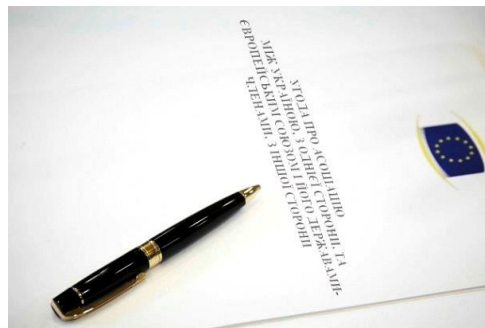 УГОДА ПРО АСОЦІАЦІЮ
МІЖ УКРАЇНОЮ, З ОДНІЄЇ СТОРОНИ, ТА
ЄВРОПЕЙСЬКИМ СОЮЗОМ І ЙОГО ДЕРЖАВАМИ-
ЧЛЕНАМИ, З ІНШОЇ СТОРОНИ